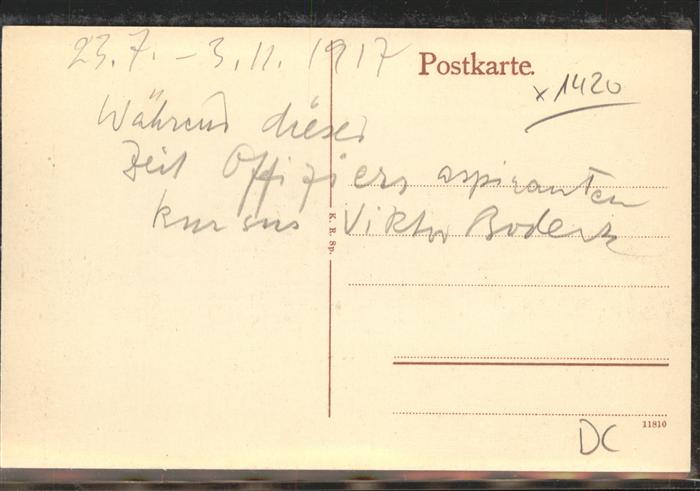 23.7. – 3.11.1917
Postkarte.
x 1420
Während dieser
Zeit Offiziers aspiranten
kursus Viktor
K. R. Sp.
11810
DC